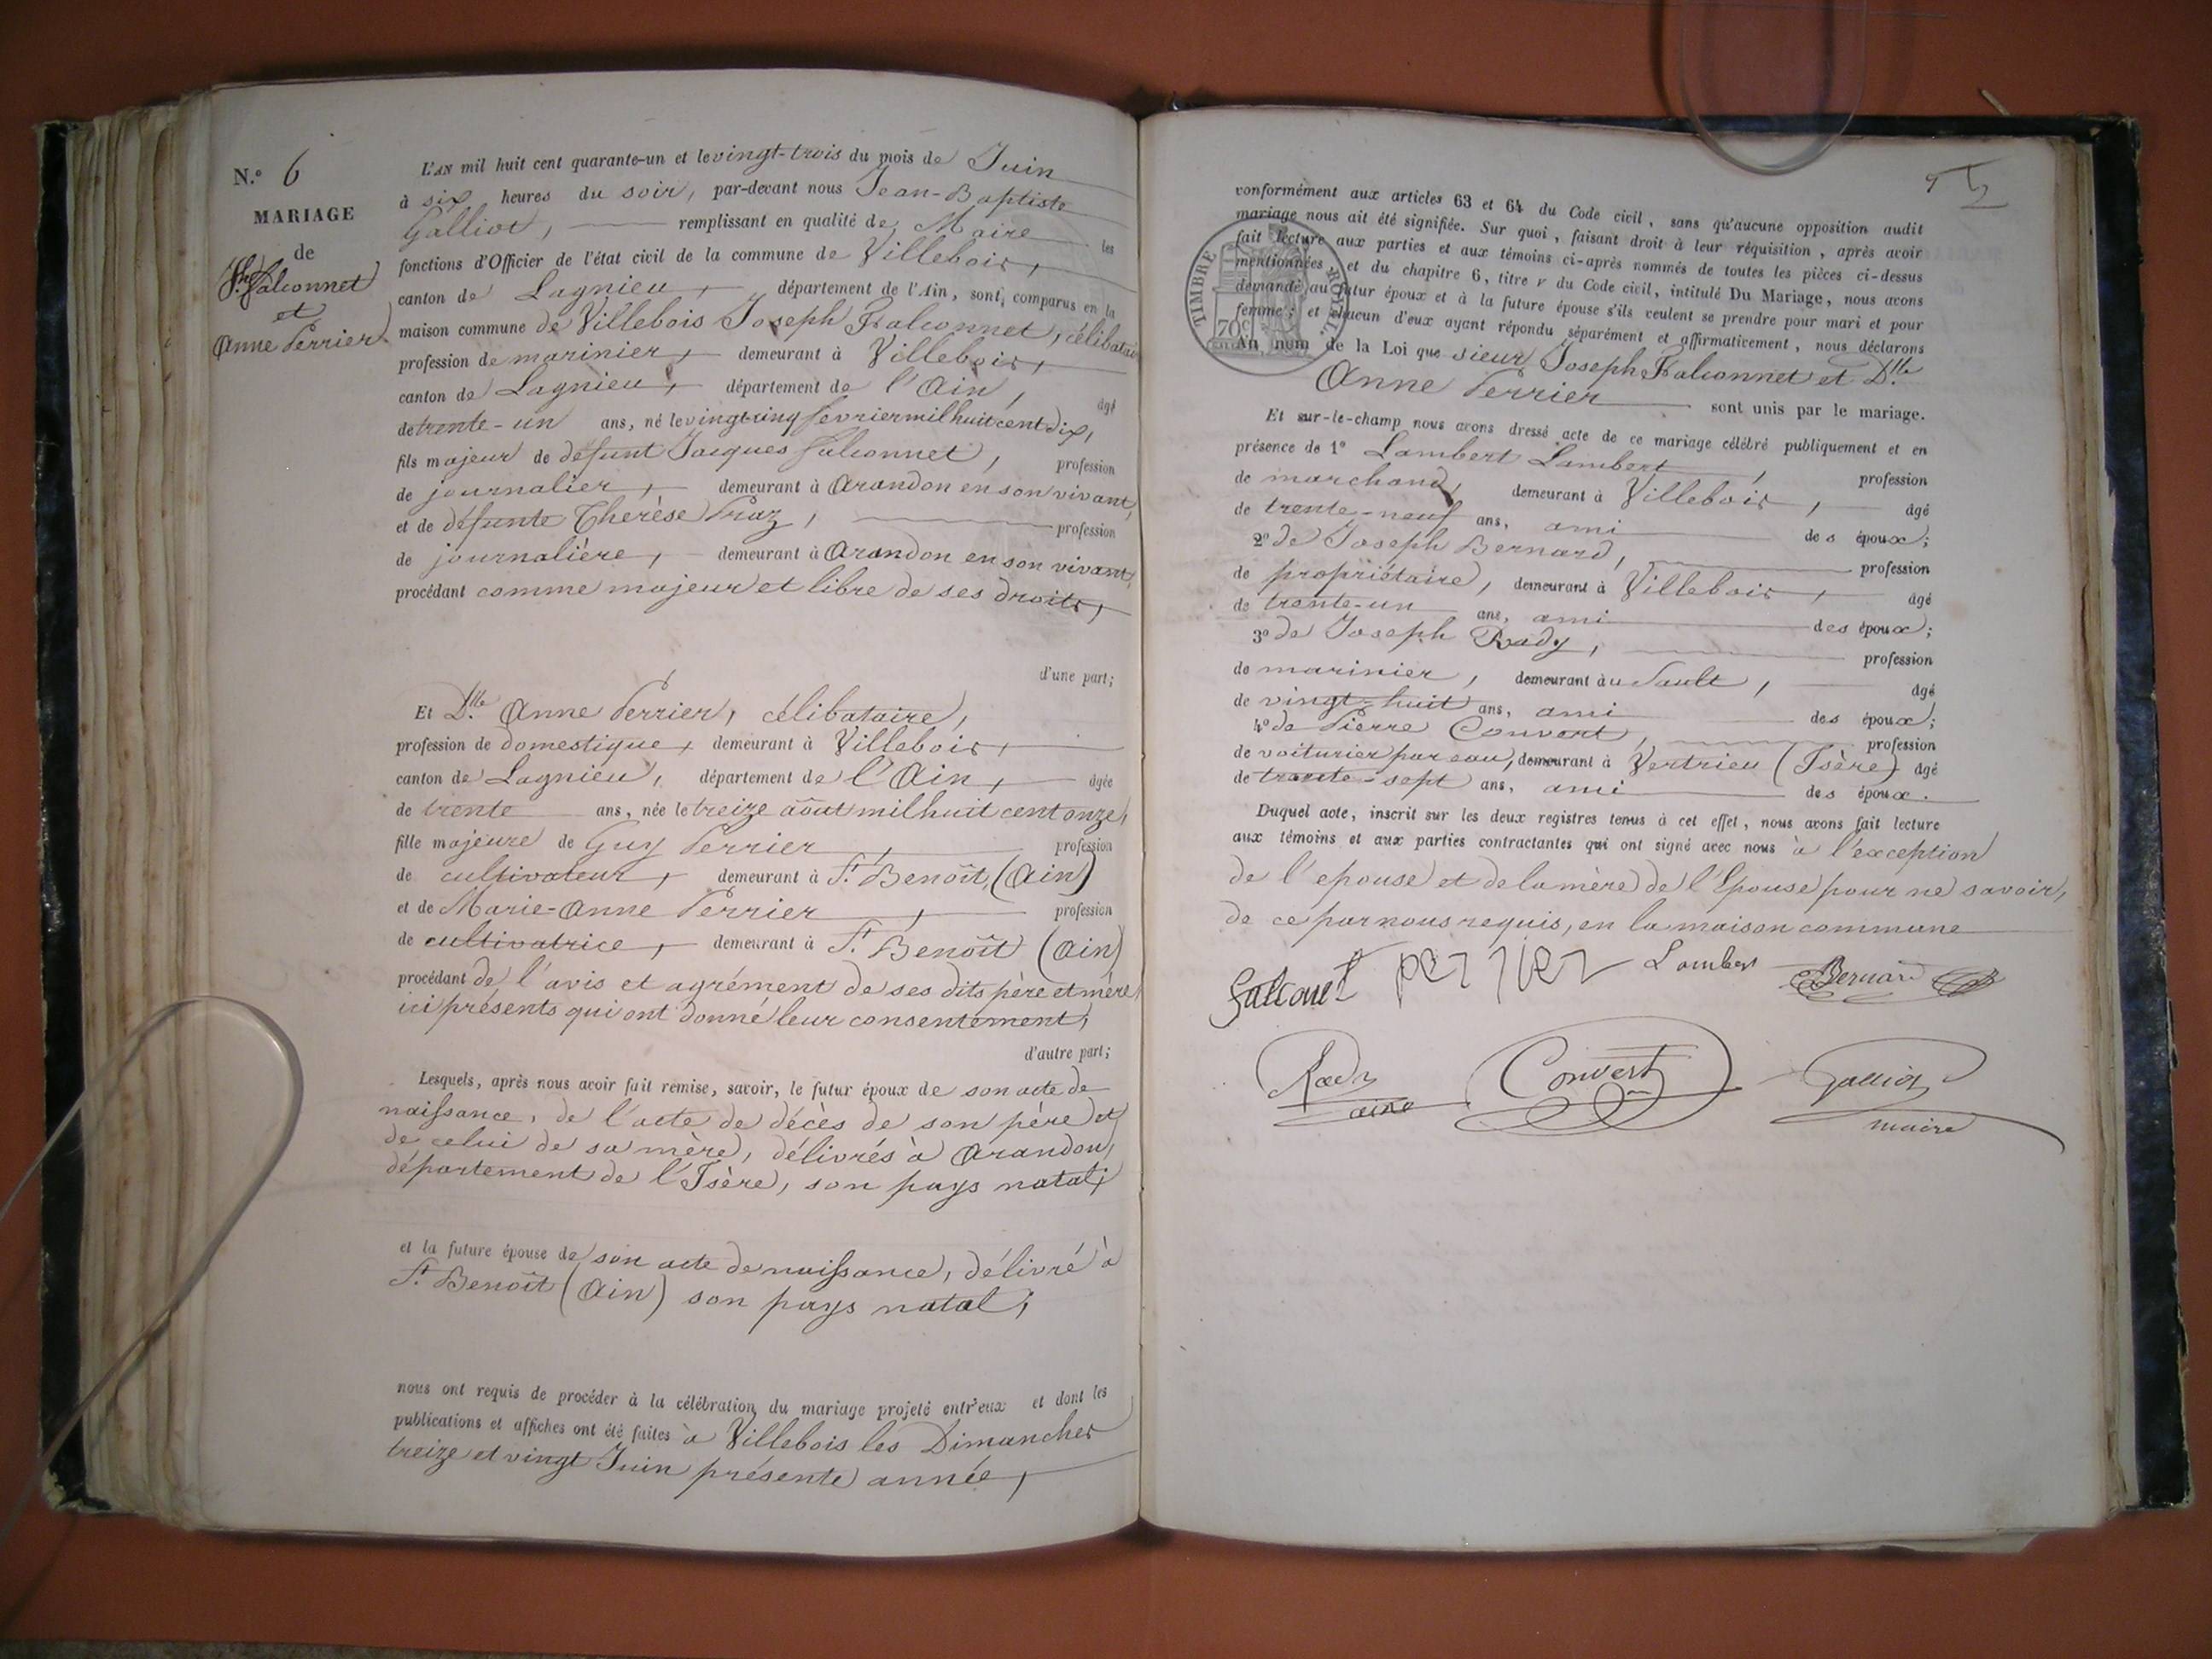 N.° 6
MARIAGE
de
Jh. Falconnet
et
Anne Perrier
L'AN mil huit cent quarante-un et le vingt-trois du mois de Juin
à six heures du soir, par-devant nous Jean-Baptiste
Galliot, remplissant en qualité de Maire les
fonctions d'Officier de l'état civil de la commune de Villebois,
canton de Lagnieu, département de l'Ain, sont comparus en la
maison commune de Villebois Joseph Falconnet, célibataire
profession de marinier, demeurant à Villebois,
canton de Lagnieu, département de l'Ain, âgé
de trente-un ans, né le vingt cinq février mil huit cent dix,
fils majeur de défunt Jacques Falconnet, profession
de journalier, demeurant à Arandon en son vivant,
et de défunte Thérèse Praz, profession
de journalière, demeurant à Arandon en son vivant,
procédant comme majeur et libre de ses droits,
d'une part;
Et Dlle Anne Perrier, célibataire,
profession de domestique, demeurant à Villebois,
canton de Lagnieu, département de l'Ain, âgée
de trente ans, née le treize août mil huit cent onze,
fille majeure de Guy Perrier, profession
de cultivateur, demeurant à St Benoît, (Ain)
et de Marie-Anne Perrier, profession
de cultivatrice, demeurant à St Benoît (Ain)
procédant de l'avis et agrément de ses dits père et mère,
ici présents qui ont donné leur consentement,
d'autre part;
Lesquels, après nous avoir fait remise, savoir, le futur époux de son acte de
naissance, de l'acte de décès de son père et
de celui de sa mère, délivrés à Arandon,
département de l'Isère, son pays natal;
et la future épouse de son acte de naissance, délivré à
St Benoît (Ain) son pays natal;
nous ont requis de procéder à la célébration du mariage projeté entr'eux et dont les
publications et affiches ont été faites à Villebois les Dimanches
treize et vingt Juin présente année,
conformément aux articles 63 et 64 du Code civil, sans qu'aucune opposition audit
mariage nous ait été signifiée. Sur quoi, faisant droit à leur réquisition, après avoir
fait lecture aux parties et aux témoins ci-après nommés de toutes les pièces ci-dessus
mentionnées, et du chapitre 6, titre v du Code civil, intitulé Du Mariage, nous avons
demandé au futur époux et à la future épouse s'ils veulent se prendre pour mari et pour
femme; et chacun d'eux ayant répondu séparément et affirmativement, nous déclarons
TIMBRE ROYAL
70c
Au nom de la Loi que sieur Joseph Falconnet et Dlle
Anne Perrier sont unis par le mariage.
Et sur-le-champ nous avons dressé acte de ce mariage célébré publiquement et en
présence de 1° Lambert Lambert, profession
de marchand, demeurant à Villebois, âgé
de trente-neuf ans, ami des époux;
2° de Joseph Bernard, profession
de propriétaire, demeurant à Villebois, âgé
de trente-un ans, ami des époux;
3° de Joseph Rady, profession
de marinier, demeurant au Sault, âgé
de vingt-huit ans, ami des époux;
4° de Pierre Convert, profession
de voiturier par eau, demeurant à Vertrieu (Isère) âgé
de trente-sept ans, ami des époux.
Duquel acte, inscrit sur les deux registres tenus à cet effet, nous avons fait lecture
aux témoins et aux parties contractantes qui ont signé avec nous à l'exception
de l'epouse et de la mère de l'Epouse pour ne savoir,
de ce par nous requis, en la maison commune
falconet perrier Lambert Bernard
Rady Convert Galliot
ainé maire